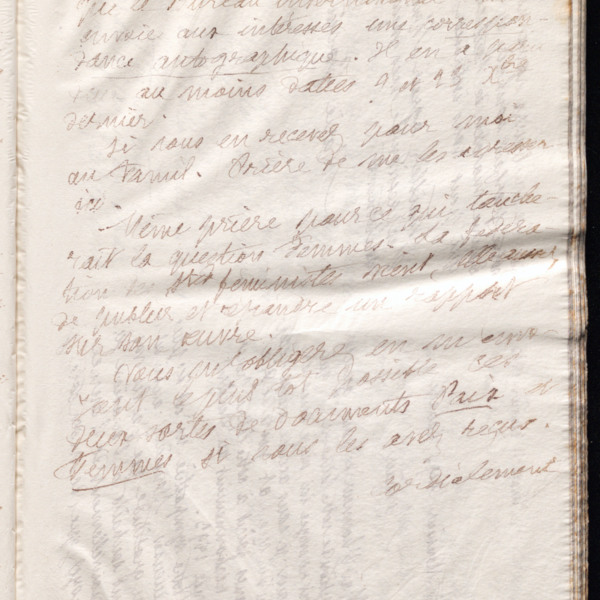 que le Bureau international
envoie aux intéressés une correspon-
dance autographique. Il en a
au moins datées et Xbre
dernier.
Si vous en recevez pour moi
au Famil. Prière de me les
ici.
Même prière pour ce qui touche-
rait la question Femmes. La fédéra
tion des Stés féministes vient,
de publier et répandre un rapport
sur son œuvre.
Vous m'obligerez en m'envo-
yant le plus tôt possible ces
deux sortes de documents Paix et
Femmes si vous les avez reçus.
Cordialement